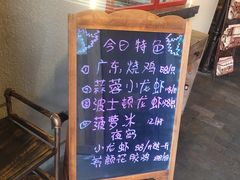 今日特色
① 广东烧鸡 68/只
② 蒜蓉小龙虾
③ 波士顿龙虾
④ 菠萝米 12/
夜宵
小龙虾
花胶鸡